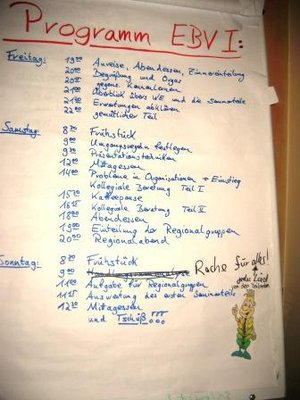 Programm EBV I:
Freitag: 19⁰⁰ Anreise, Abendessen, Zimmereinteilung
20⁰⁰ Begrüßung und Orga
20³⁰ gegens. Kennenlernen
21⁰⁰ Überblick übers WE und die Seminarteile
21³⁰ Erwartungen abklären
22⁰⁰ gemütlicher Teil
Samstag: 8³⁰ Frühstück
9⁰⁰ Umgangsregeln festlegen
9³⁰ Präsentationstechniken
12⁰⁰ Mittagessen
14⁰⁰ Probleme in Organisationen + Einstieg
Kollegiale Beratung Teil I
15³⁰ Kaffeepause
16⁰⁰ Kollegiale Beratung Teil II
18⁰⁰ Abendessen
19⁰⁰ Einteilung der Regionalgruppen
20⁰⁰ Regionalabend
Sonntag: 8³⁰ Frühstück
9⁰⁰ Rache für alles!
jedes Lied
11⁰⁰ Aufgabe für Regionalgruppen
11⁴⁵ Auswertung des ersten Seminarteils
12³⁰ Mittagessen
und Tschüß!!!